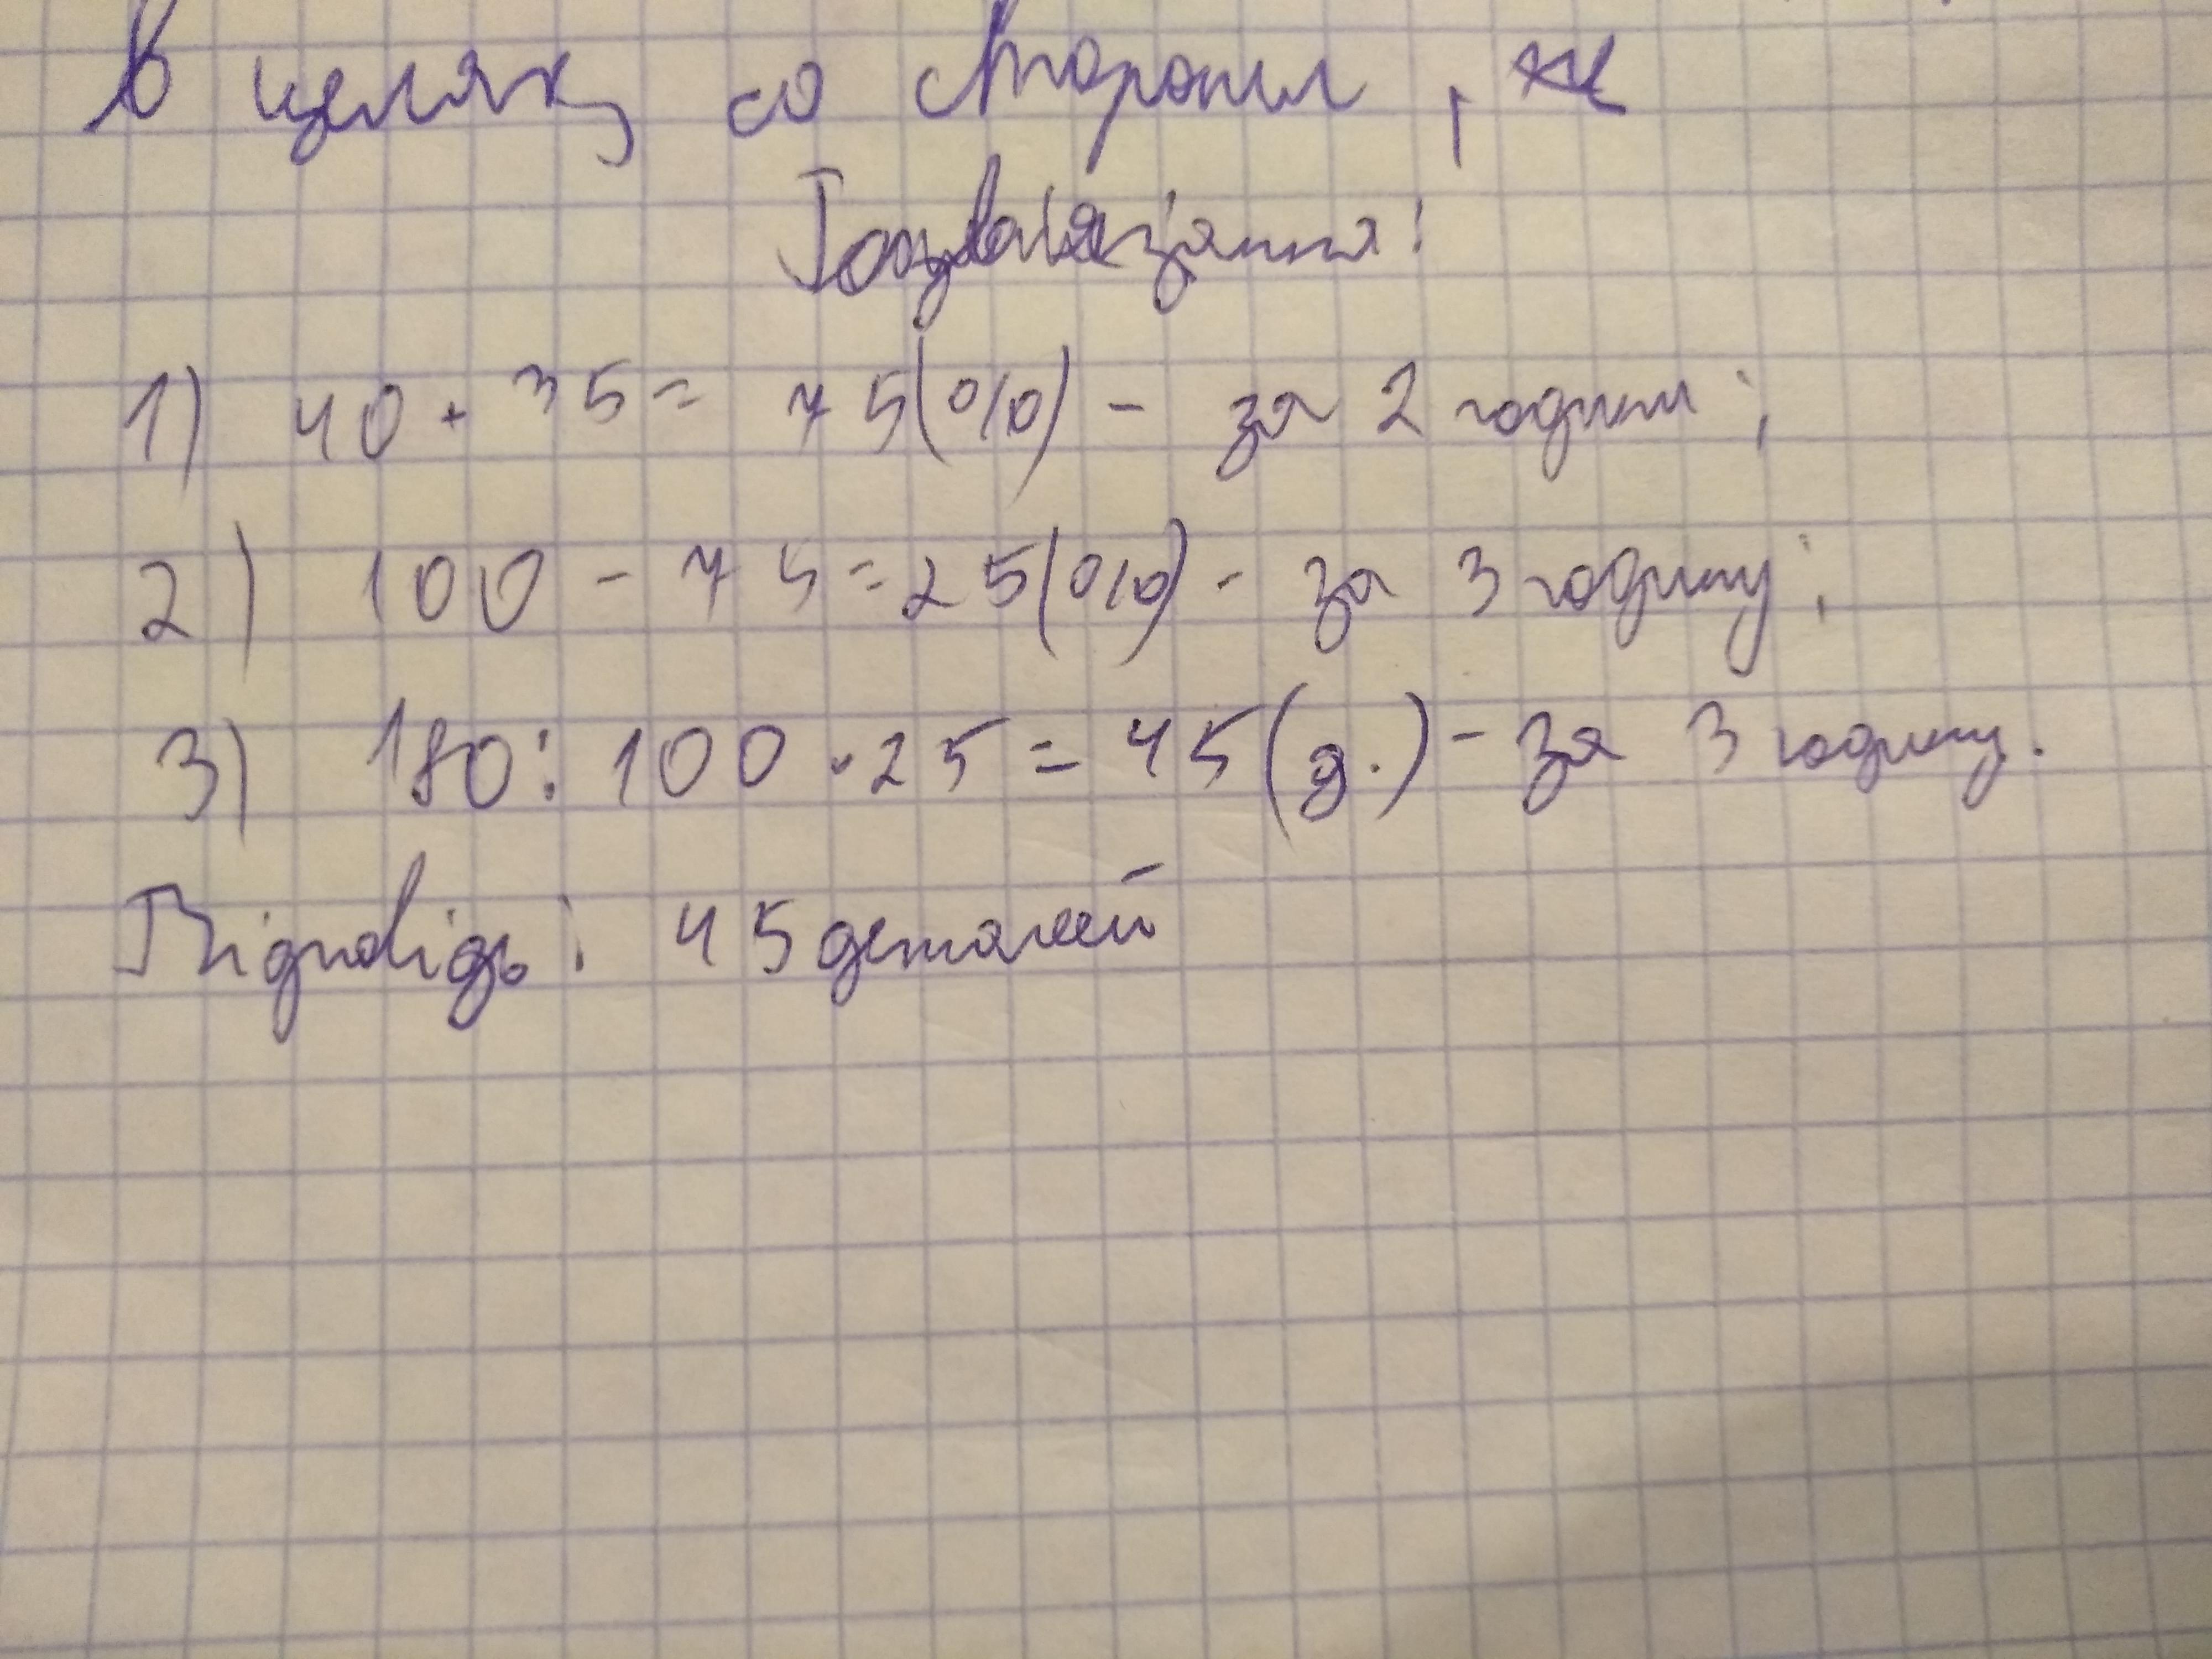 в целях со стороны, не
Розв'язання:
1) 40 + 35 = 75(%) - за 2 години;
2) 100 - 75 = 25(%) - за 3 годину;
3) 180 : 100 · 25 = 45(д.) - за 3 годину.
Відповідь: 45 деталей